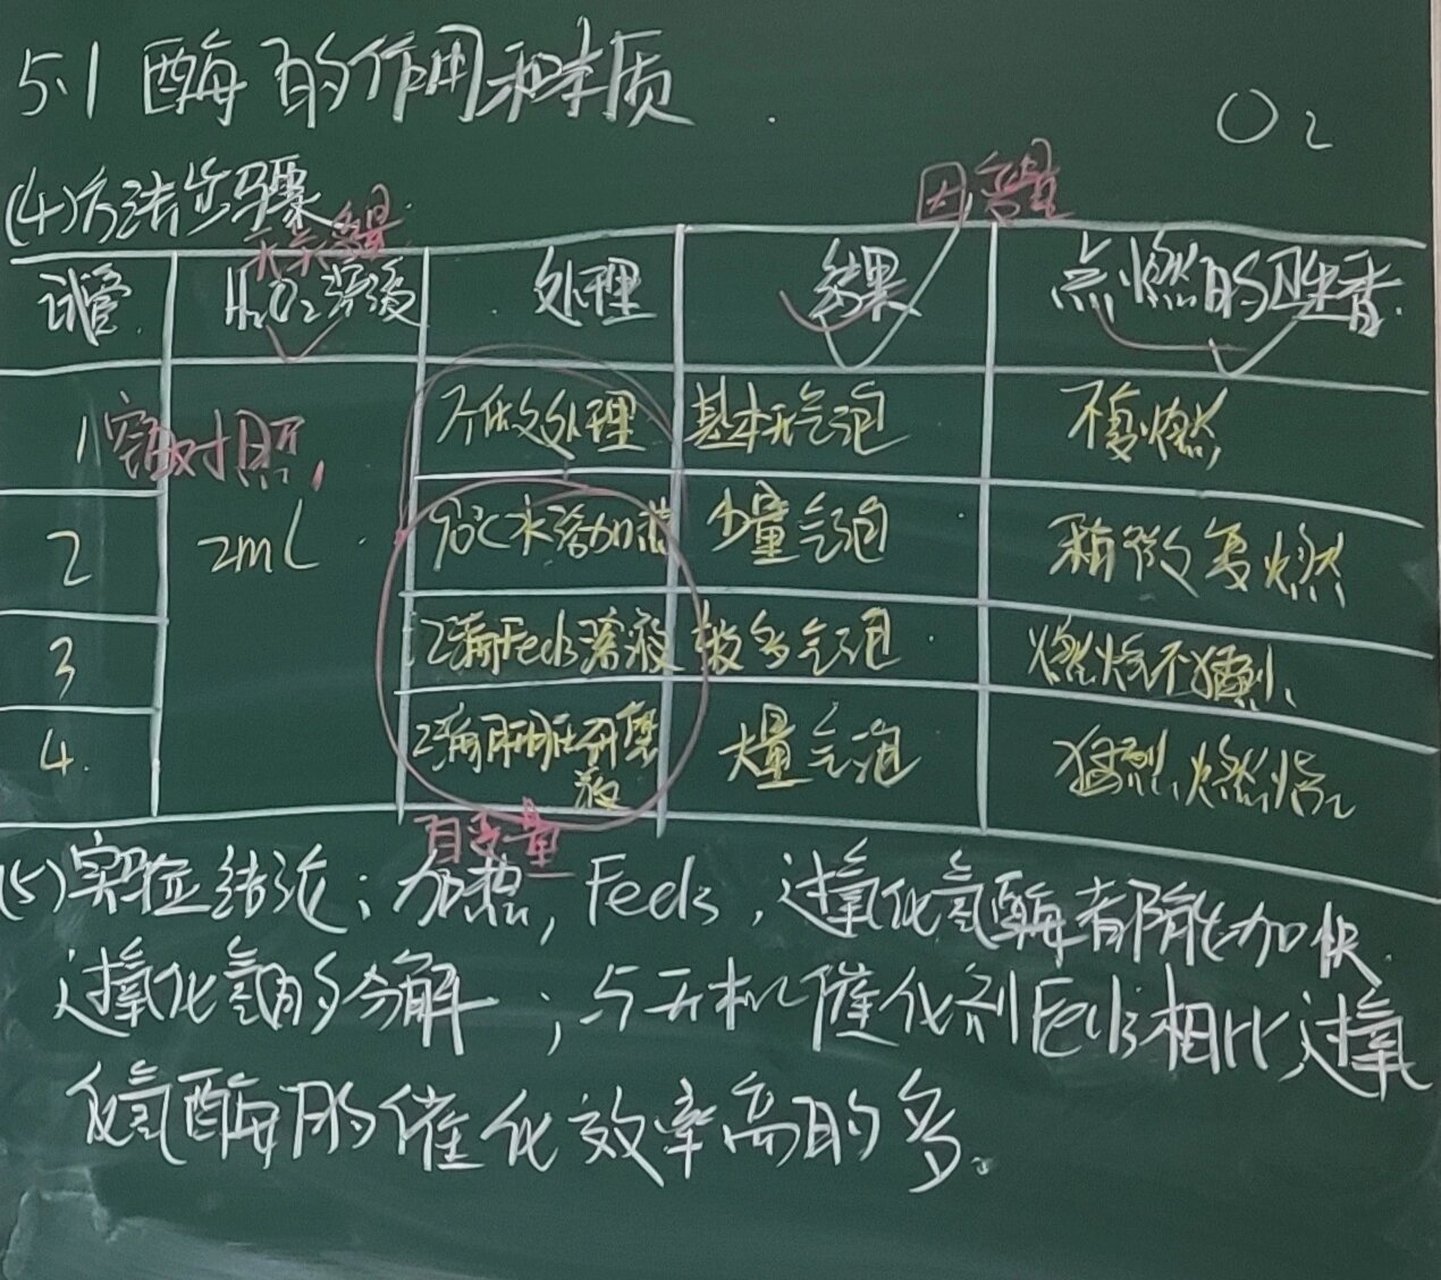 5.1 酶的作用和本质
O₂
(4)方法步骤
无关变量
因变量
试管 H₂O₂溶液 处理 结果 点燃的卫生香
1 空白对照 不做处理 基本无气泡 不复燃
2 2mL 90℃水浴加热 少量气泡 稍微复燃
3 2滴FeCl₃溶液 较多气泡 燃烧不猛烈
4 2滴肝脏研磨液 大量气泡 猛烈燃烧
自变量
(5)实验结论：加热，FeCl₃，过氧化氢酶都能加快
过氧化氢的分解；与无机催化剂FeCl₃相比，过氧
化氢酶的催化效率高的多。